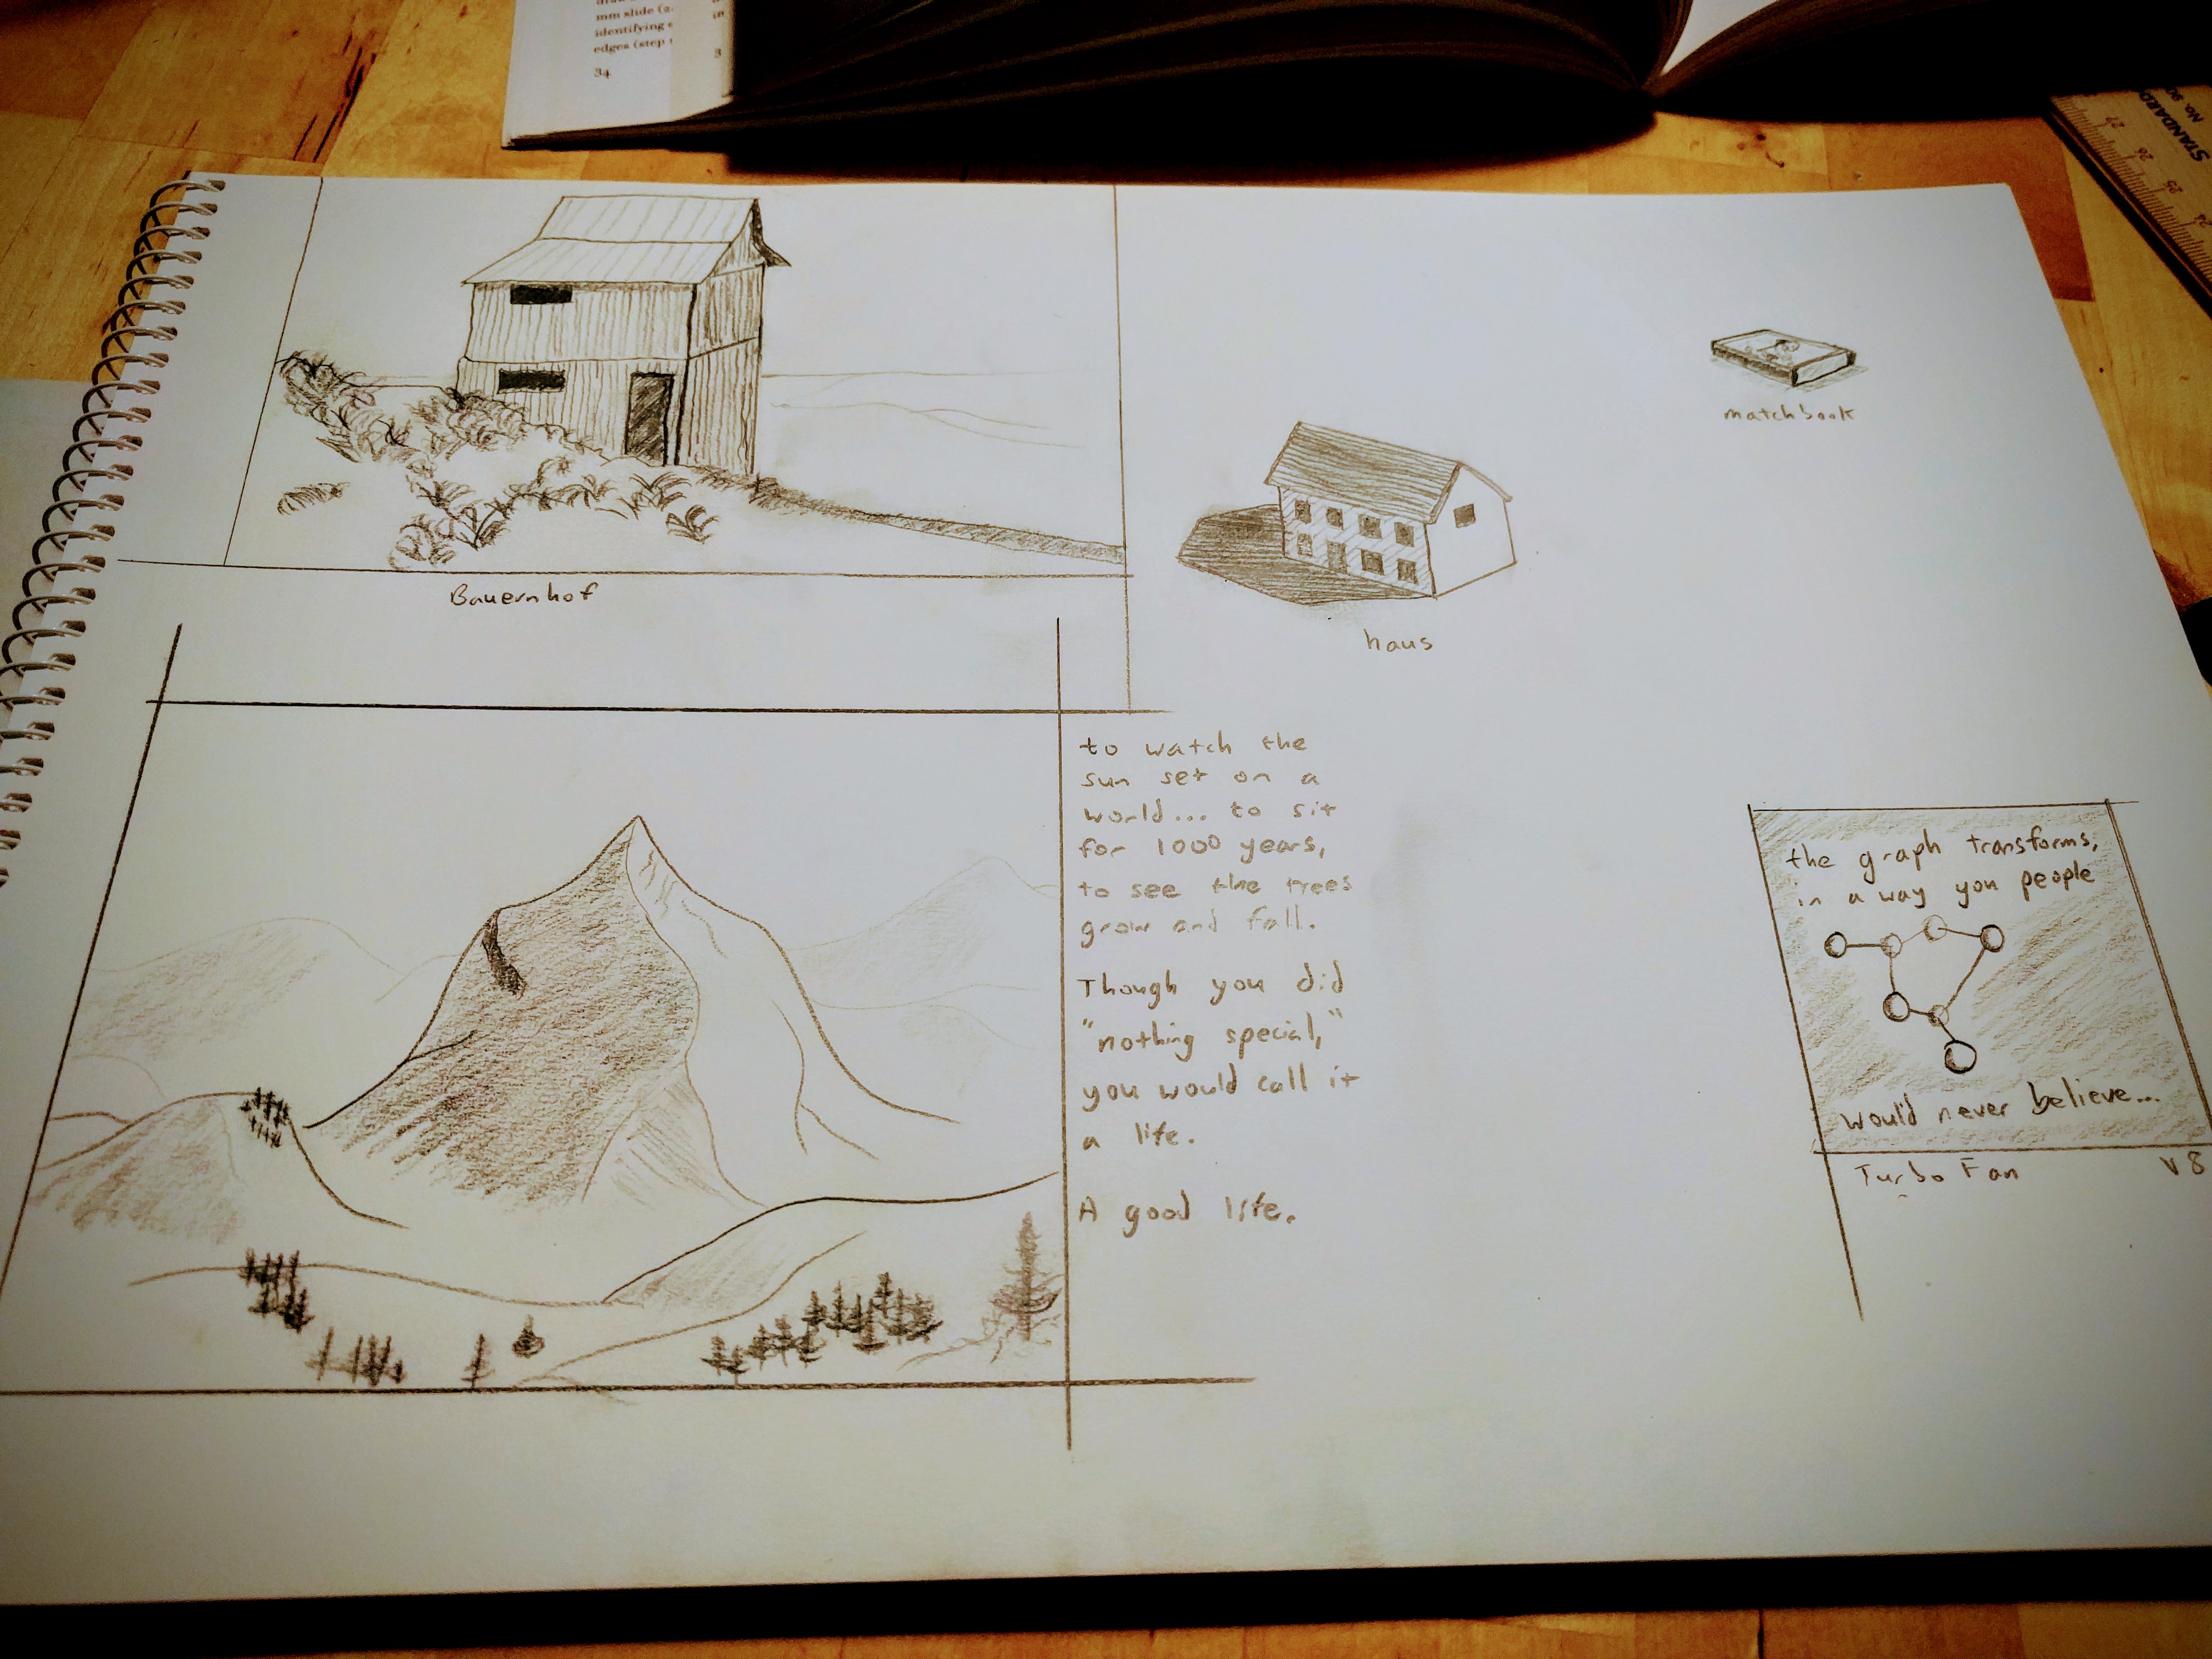 mm slide (2
identifying
edges (step
34
3
STANDARD
No. 90
27
26
25
24
matchbook
Bauernhof
haus
to watch the
sun set on a
world... to sit
for 1000 years,
to see the trees
grow and fall.
Though you did
"nothing special,"
you would call it
a life.
A good life.
the graph transforms,
in a way you people
would never believe...
Turbo Fan
v8